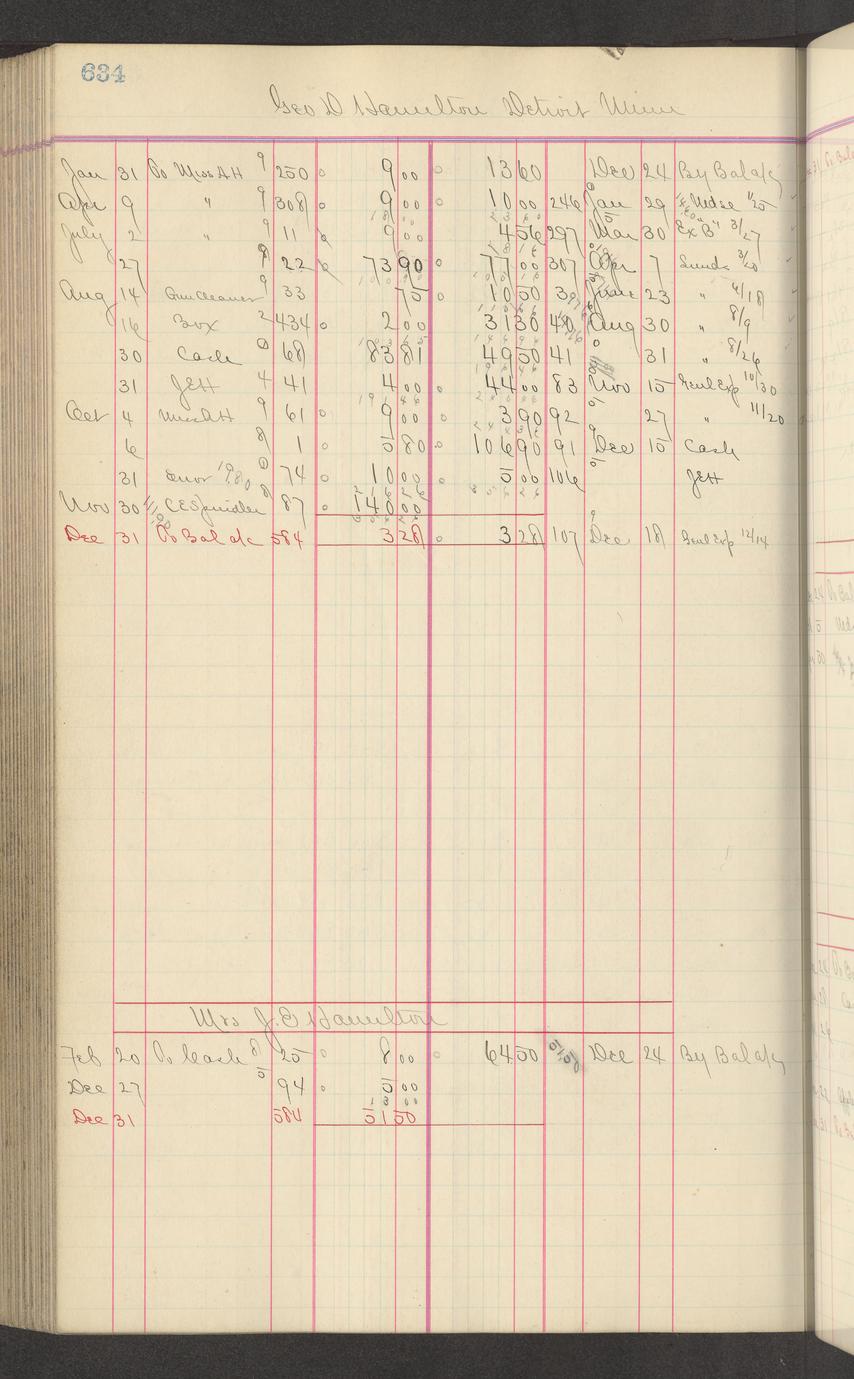 634
Geo D Hamilton Detroit Minn
Jan 31 To Miss AH 9 250 9 00 13 60 Dec 24 By Bal a/c
Apr 9 " 9 308 9 00 10 00 246 Jan 29 Mdse 1/25
July 2 " 9 11 9 00 4 56 297 Mar 30 Ex "B" 3/27
27 9 22 73 90 77 00 307 Apr 7 Sunds 3/20
Aug 14 Guncleaner 9 33 75 10 50 June 23 " 6/18
16 Box 2 434 2 00 31 30 40 Aug 30 " 8/9
30 Cash 68 83 81 49 50 41 31 " 8/26
31 JEH 4 41 4 00 44 00 83 Nov 15 Genl Exp 10/30
Oct 4 Miss AH 9 61 9 00 3 90 92 27 " 11/20
6 8 1 5 80 106 90 91 Dec 15 Cash
31 Error 74 10 00 5 00 106 JEH
Nov 30 CE Spindler 8 87 140 00
Dec 31 To Bal a/c 584 3 28 3 28 107 Dec 18 Genl Exp 12/14
Mrs J.E Hamilton
Feb 20 To Cash 8 25 8 00 64 50 51.50 Dec 24 By Bal a/c
Dec 27 5 94 5 00
13 00
Dec 31 584 51 50